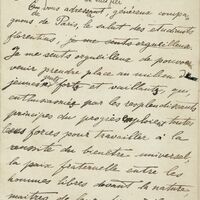 En vous adressant, généreux compa-
gnons de Paris, le salut des étudiants
florentins, je me sens orgueilleux
Je me sens orgueilleux de pouvoir
venir prendre place au milieu de
jeunes forts et vaillants qui,
enthousiasmés par les resplendissants
principes du progrès emploient toutes
forces pour travailler à la
du bienêtre universel,
la paix fraternelle entre les
hommes libres devant la nature,
maîtres de la